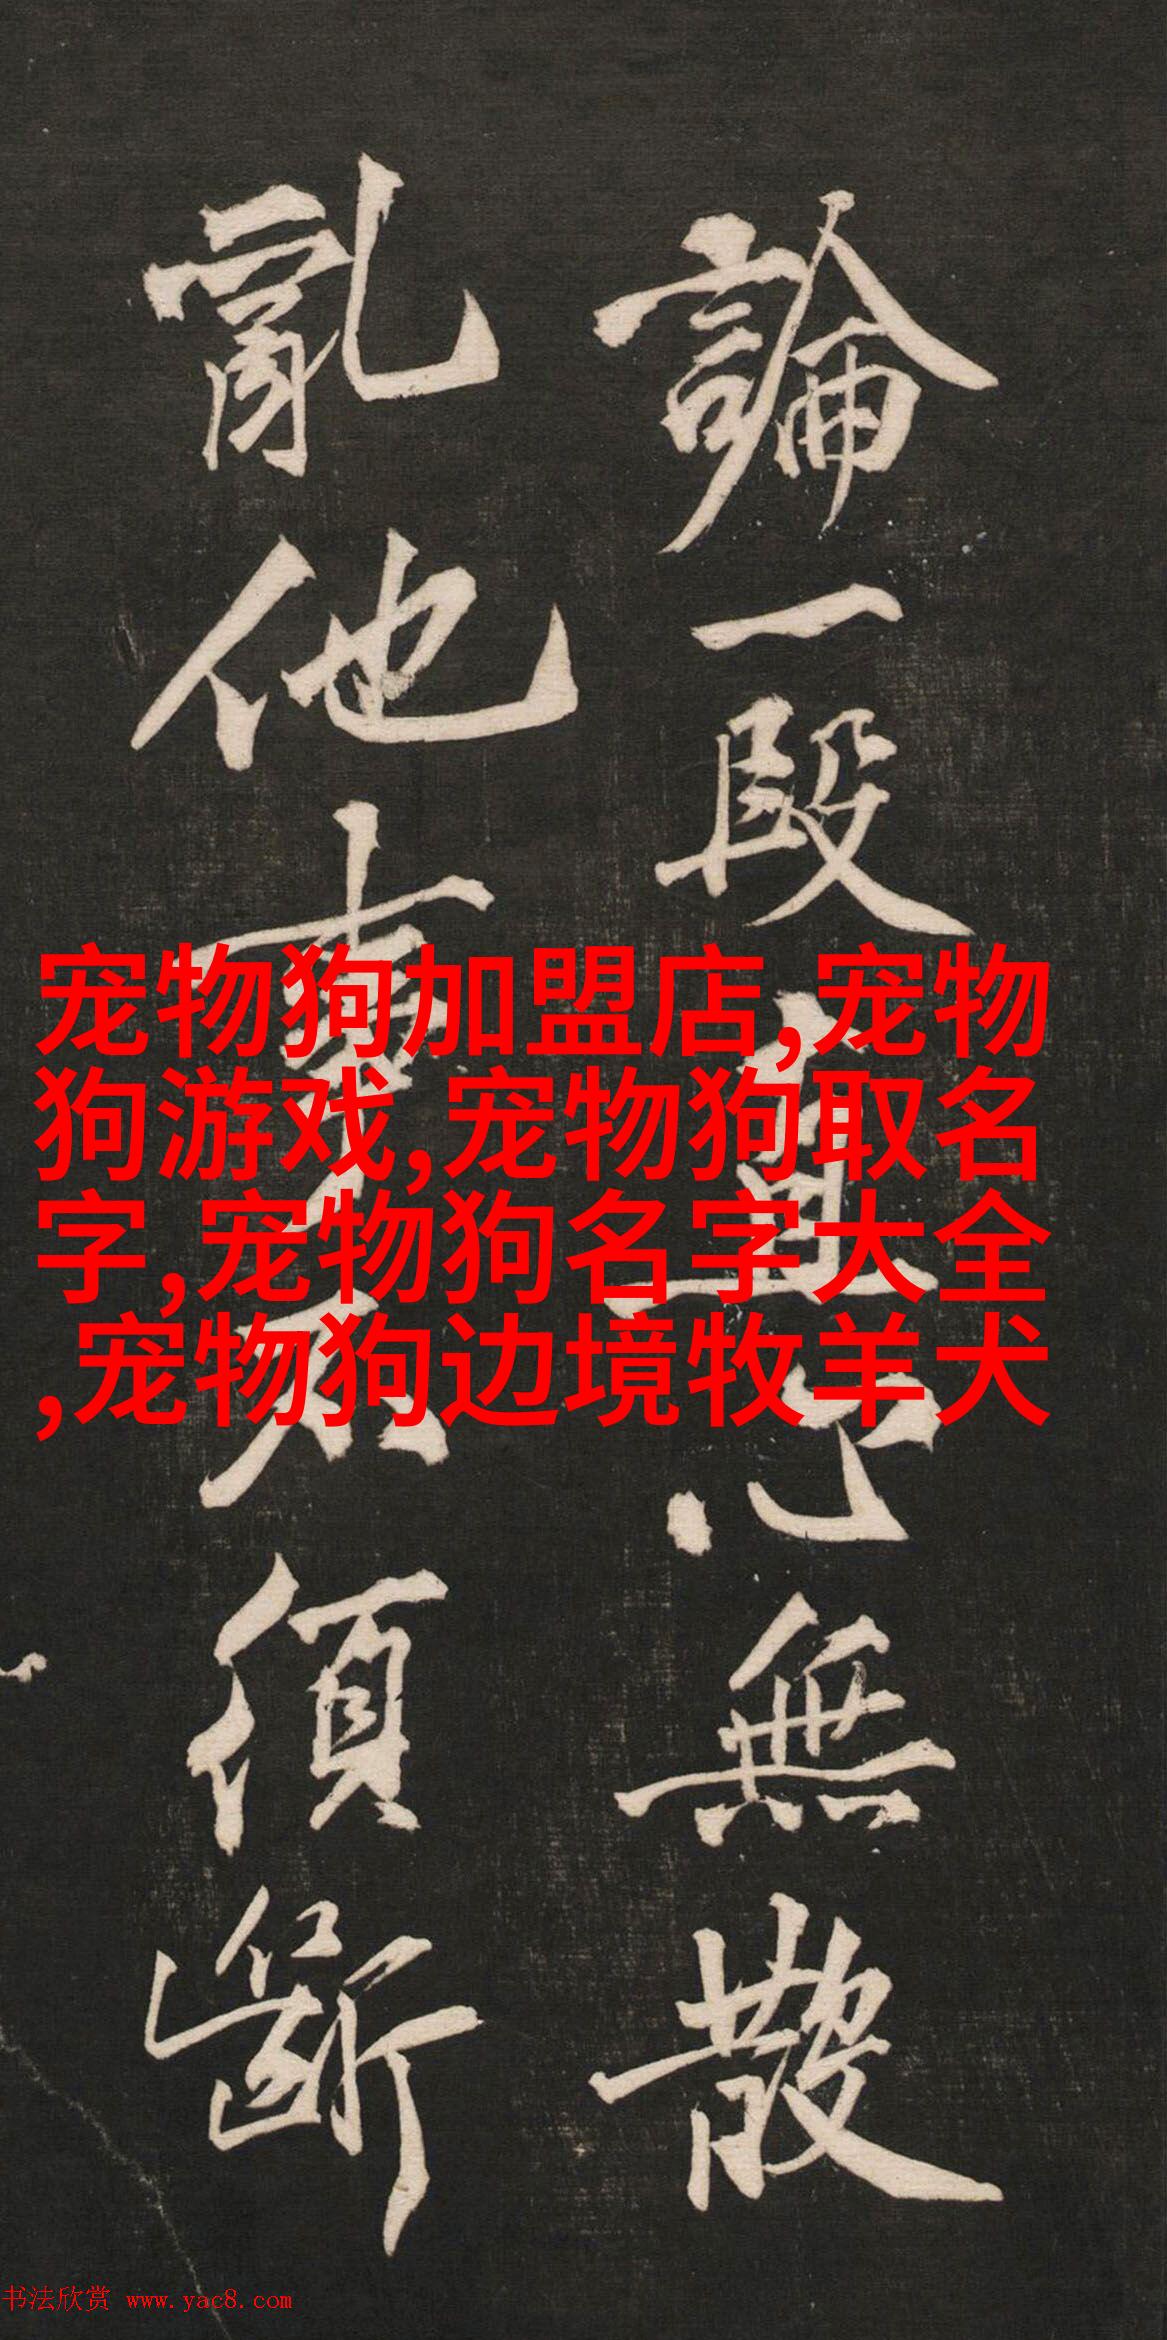 論一段直心無散
亂他事不須斷
宠物狗加盟店,宠物
狗游戏,宠物狗取名
字,宠物狗名字大全
,宠物狗边境牧羊犬
书法欣赏 www.yac8.com